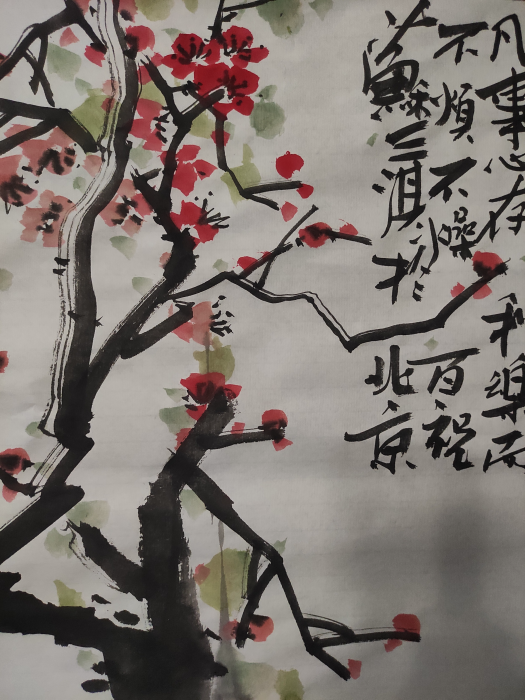 凡事心存和樂而
不煩不躁百祝
蘇三於北京